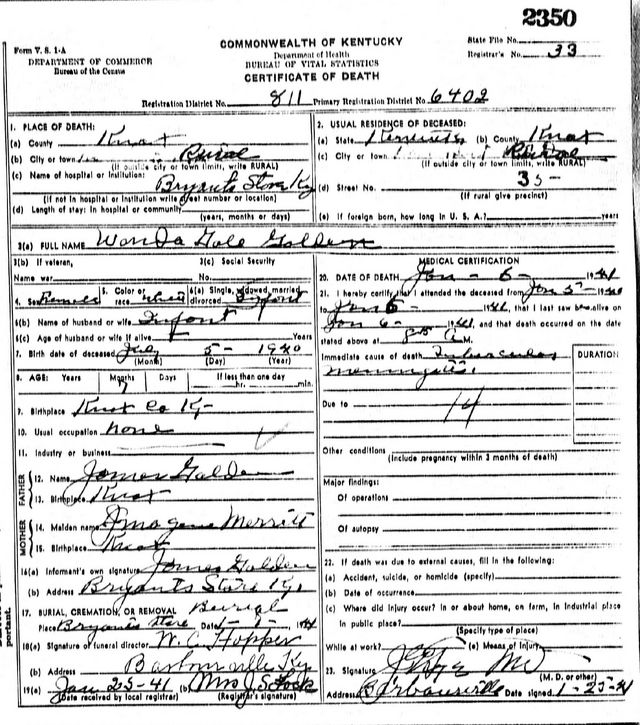 2350
Form V. S. 1-A
DEPARTMENT OF COMMERCE
Bureau of the Census
COMMONWEALTH OF KENTUCKY
Department of Health
BUREAU OF VITAL STATISTICS
CERTIFICATE OF DEATH
State File No.
Registrar's No. 33
Registration District No. 811 Primary Registration District No. 6402
1. PLACE OF DEATH:
(a) County Knox
(b) City or town Rural
(If outside city or town limits, write RURAL)
(c) Name of hospital or institution:
Bryants Store Ky
(If not in hospital or institution write street number or location)
(d) Length of stay: In hospital or community
(years, months or days)
2. USUAL RESIDENCE OF DECEASED:
(a) State Kentucky (b) County Knox
(c) City or town Rural
(If outside city or town limits, write RURAL)
35-
(d) Street No.
(If rural give precinct)
(e) If foreign born, how long in U. S. A.? years
3(a) FULL NAME Wanda Gale Golden
3(b) If veteran,
Name war
3(c) Social Security
No.
4. Sex Female 5. Color or race White 6(a) Single, widowed, married, divorced Infant
6(b) Name of husband or wife Infant
6(c) Age of husband or wife if alive Years
7. Birth date of deceased July 5- 1940
(Month) (Day) (Year)
8. AGE: Years Months Days If less than one day
hr. min.
9. Birthplace Knox Co Ky-
10. Usual occupation none
11. Industry or business
FATHER
12. Name James Golden
13. Birthplace Knox
MOTHER
14. Maiden name Imogene Merritt
15. Birthplace Knox
16(a) Informant's own signature James Golden
(b) Address Bryants Store Ky.
17. BURIAL, CREMATION, OR REMOVAL Burial
Place Bryants Store Date
18(a) Signature of funeral director W. C. Hopper
(b) Address Barbourville Ky
19(a) Jan 25-41 (b) Mrs J. S. Lock
(Date received by local registrar) (Registrar's signature)
MEDICAL CERTIFICATION
20. DATE OF DEATH Jan - 6 - 1941
21. I hereby certify that I attended the deceased from Jan 5-
to Jan 6 - 1941, that I last saw alive on
Jan 6 - 1941, and that death occurred on the date
stated above at M.
Immediate cause of death Tuberculous
Meningitis.
DURATION
Due to 14
Other conditions
(Include pregnancy within 3 months of death)
Major findings:
Of operations
Of autopsy
22. If death was due to external causes, fill in the following:
(a) Accident, suicide, or homicide (specify)
(b) Date of occurrence
(c) Where did injury occur? In or about home, on farm, in industrial place
in public place?
(Specify type of place)
While at work? (e) Means of Injury
23. Signature MD
(M. D. or other)
Address Barbourville Date signed 1-25-41
portant.